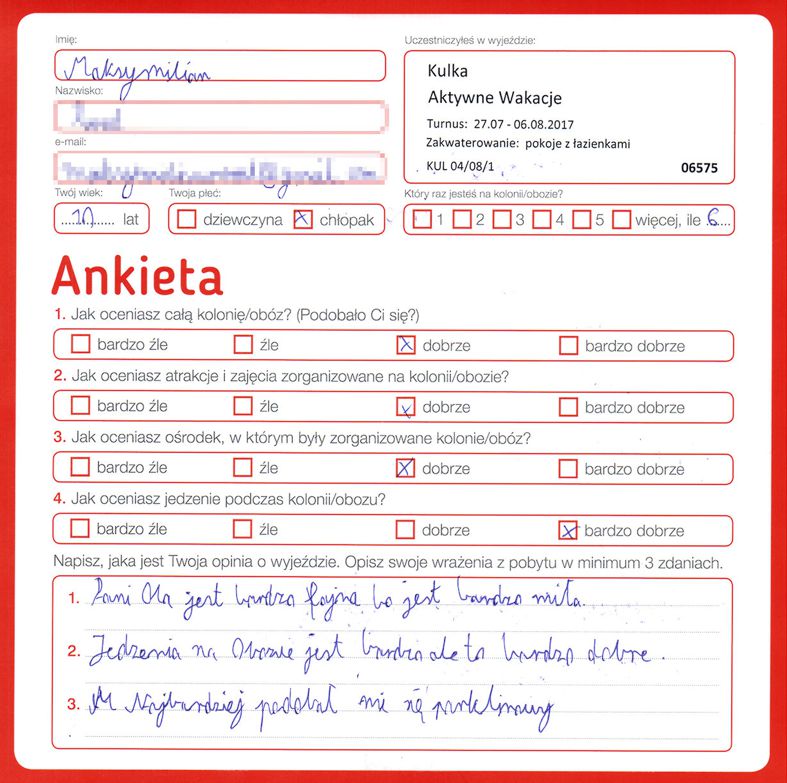 Imię:
Maksymilian
Nazwisko:
e-mail:
Twój wiek:
10 lat
Twoja płeć:
dziewczyna chłopak
Uczestniczyłeś w wyjeździe:
Kulka
Aktywne Wakacje
Turnus: 27.07 - 06.08.2017
Zakwaterowanie: pokoje z łazienkami
KUL 04/08/1 06575
Który raz jesteś na kolonii/obozie?
1 2 3 4 5 więcej, ile 6
Ankieta
1. Jak oceniasz całą kolonię/obóz? (Podobało Ci się?)
bardzo źle źle dobrze bardzo dobrze
2. Jak oceniasz atrakcje i zajęcia zorganizowane na kolonii/obozie?
bardzo źle źle dobrze bardzo dobrze
3. Jak oceniasz ośrodek, w którym były zorganizowane kolonie/obóz?
bardzo źle źle dobrze bardzo dobrze
4. Jak oceniasz jedzenie podczas kolonii/obozu?
bardzo źle źle dobrze bardzo dobrze
Napisz, jaka jest Twoja opinia o wyjeździe. Opisz swoje wrażenia z pobytu w minimum 3 zdaniach.
1. Pani Ola jest bardzo fajna bo jest bardzo miła.
2. Jedzenia na Obozie jest bardzo ale to bardzo dobre.
3. Najbardziej podobał mi się park linowy